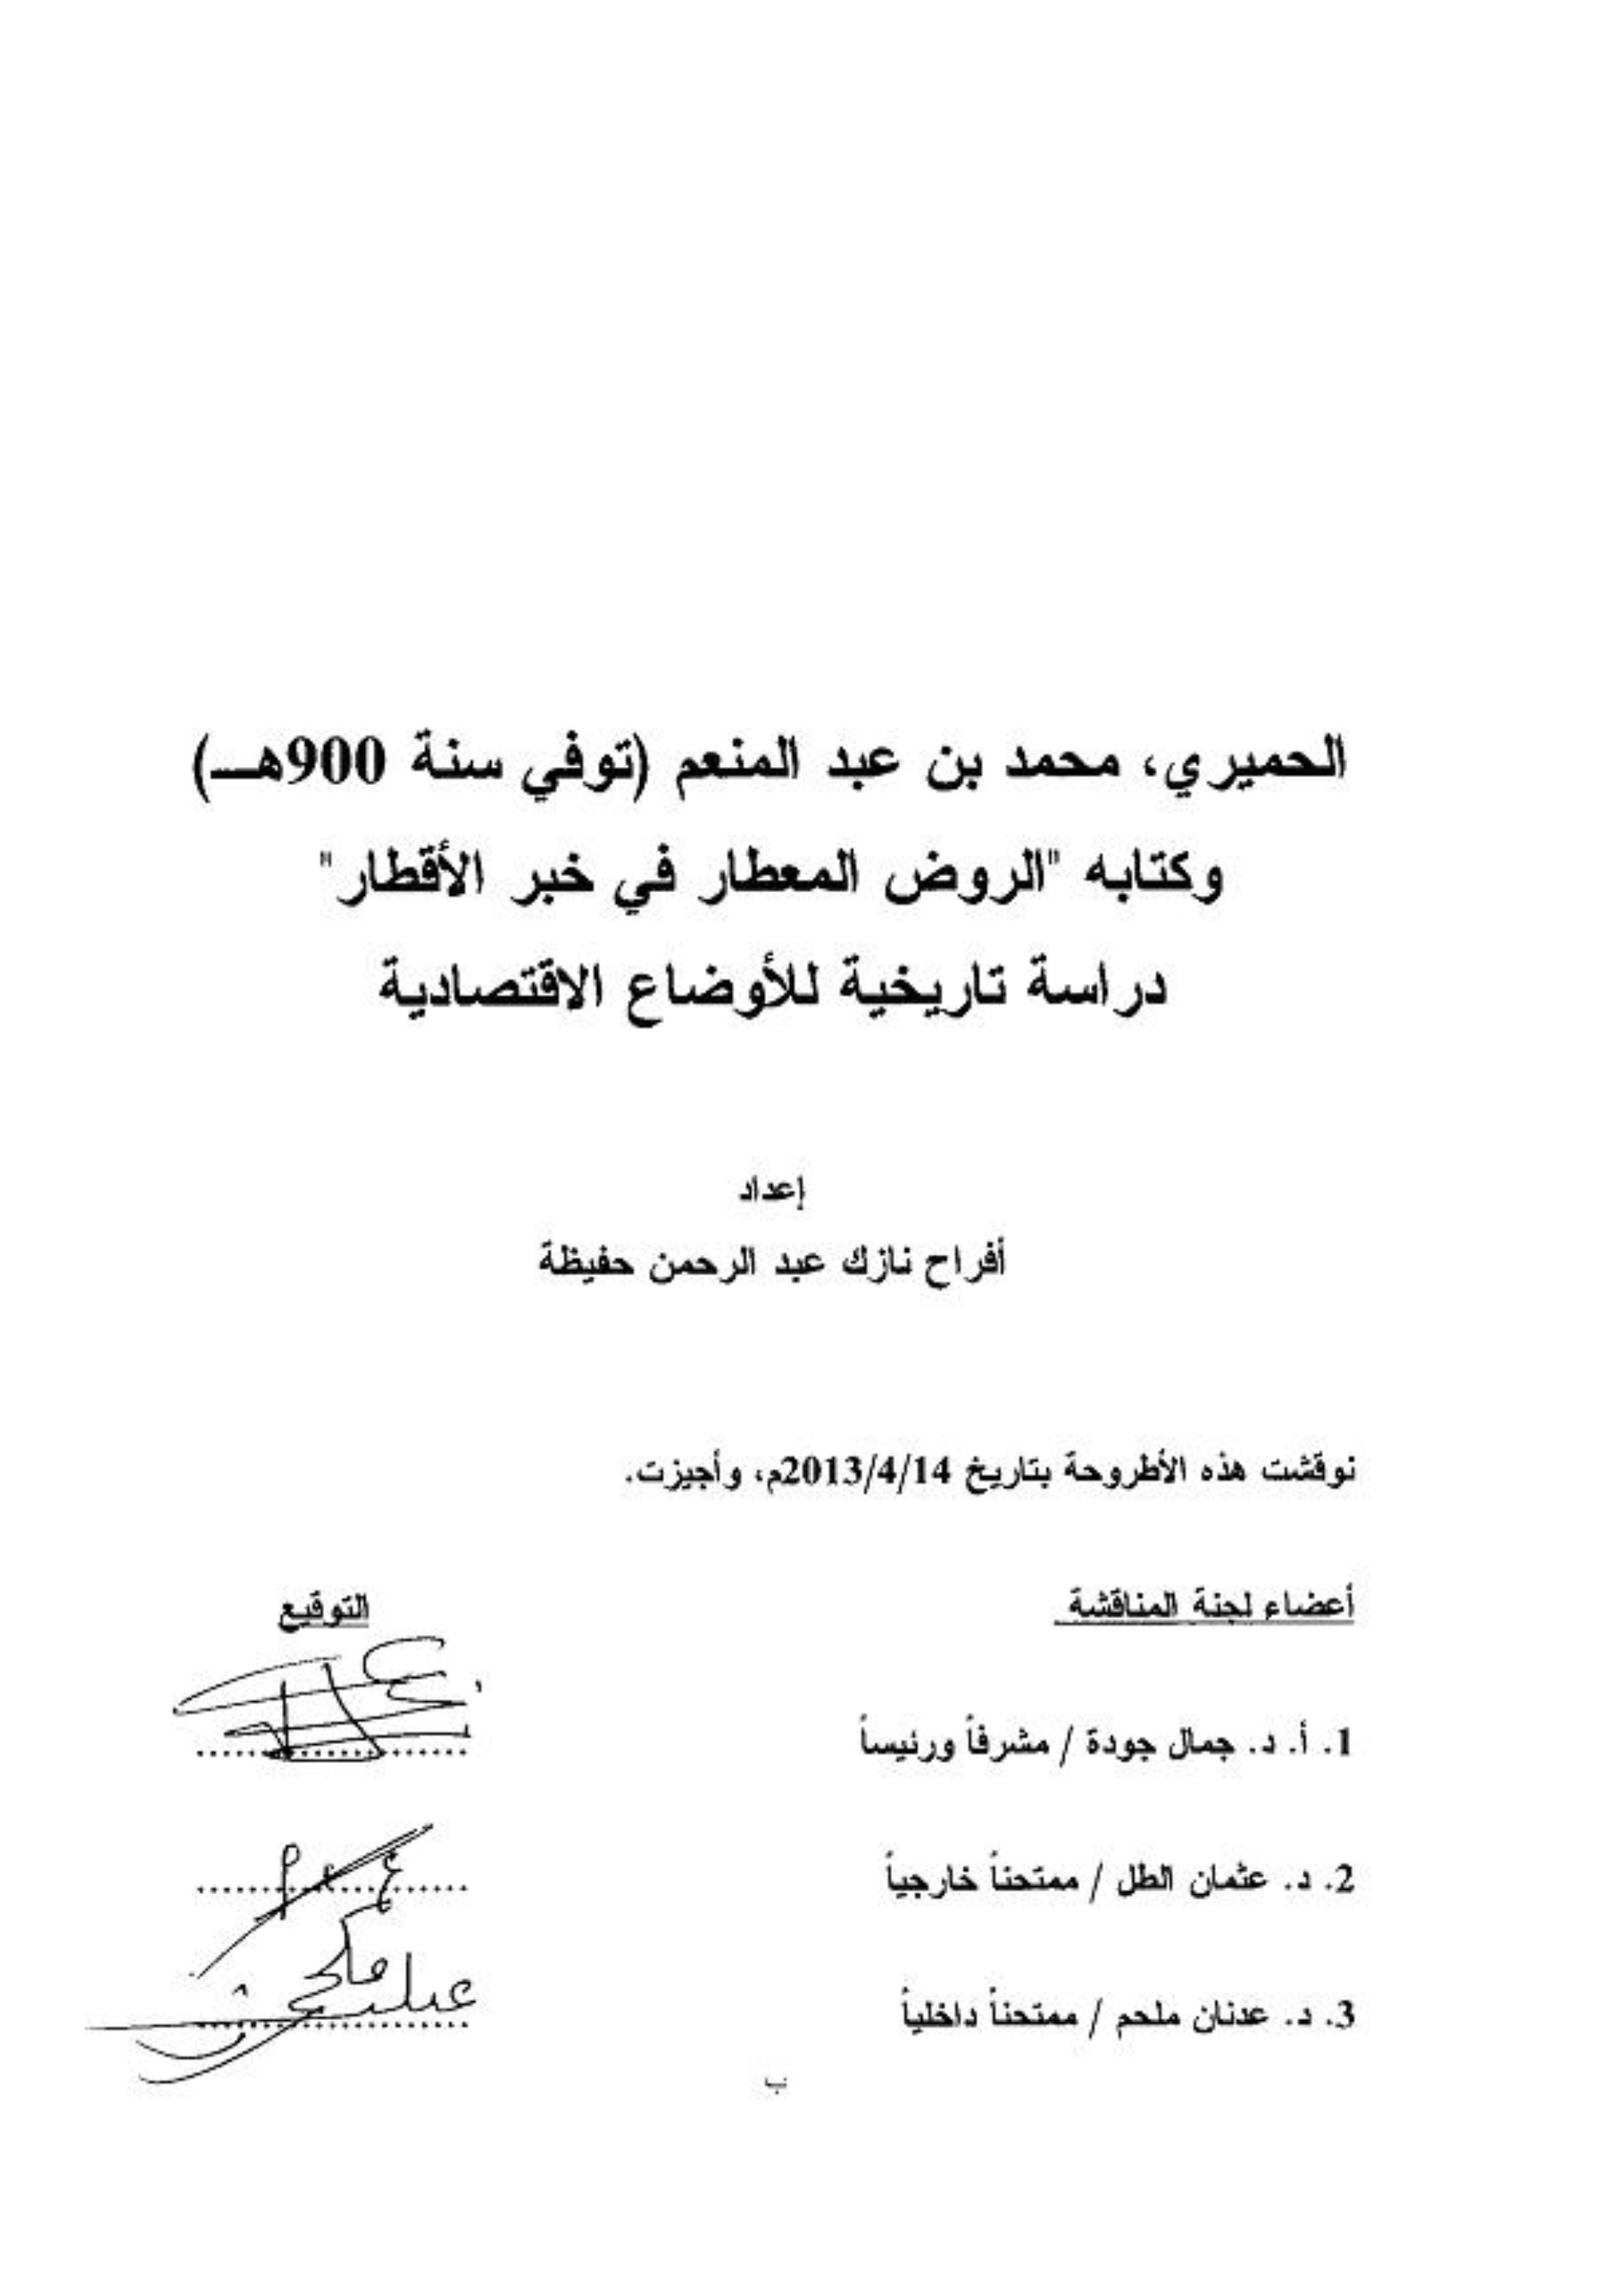 الحميري، محمد بن عبد المنعم (توفي سنة 900هـــ)
وكتابه "الروض المعطار في خبر الأقطار"
دراسة تاريخية للأوضاع الاقتصادية
إعداد
أفراح نازك عبد الرحمن حفيظة
نوقشت هذه الأطروحة بتاريخ 2013/4/14م، وأجيزت.
أعضاء لجنة المناقشة
التوقيع
1. أ. د. جمال جودة / مشرفاً ورئيساً
2. د. عثمان الطل / ممتحناً خارجياً
3. د. عدنان ملحم / ممتحناً داخلياً
ب